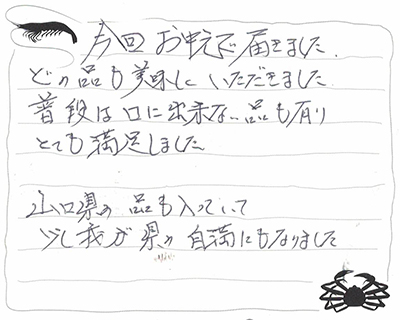 今回 お中元で 届きました.
どの品も美味しく いただきました
普段は口に出来ない品も有り
とても 満足しました
山口県の 品も入っていて
少し我が県の自満にもなりました